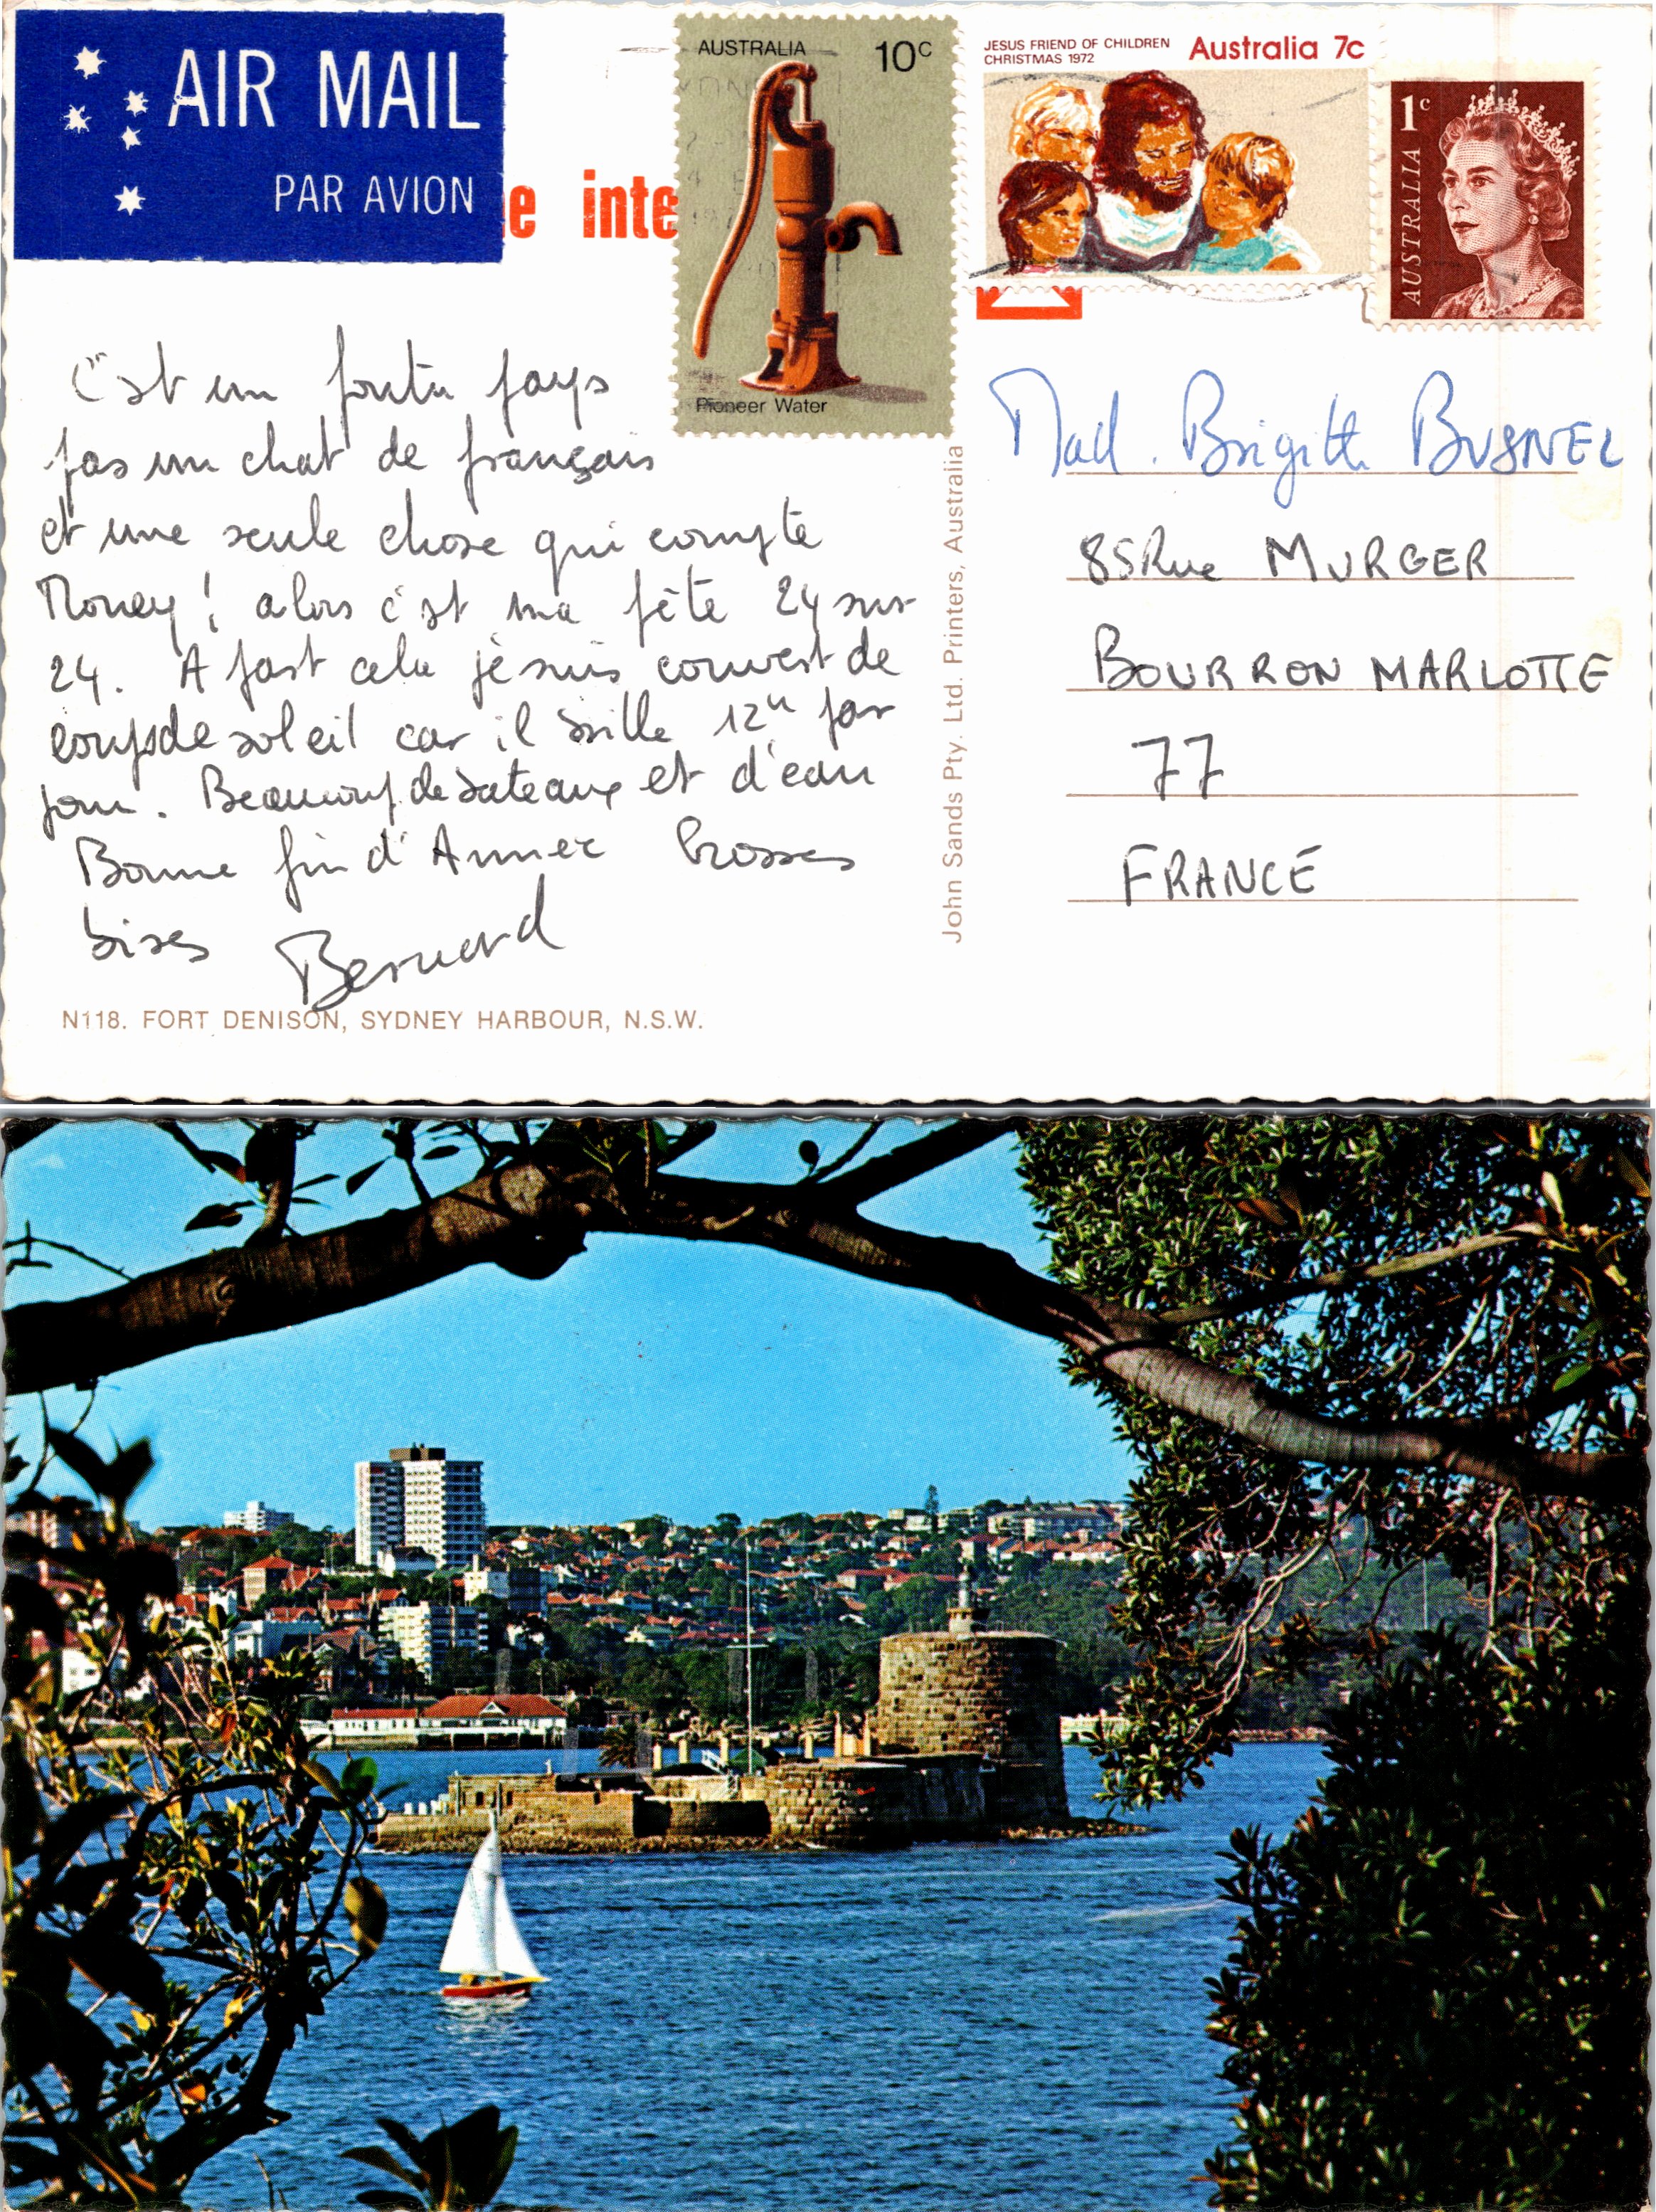 AIR MAIL
PAR AVION
e inte
AUSTRALIA 10c
Pioneer Water
JESUS FRIEND OF CHILDREN
CHRISTMAS 1972
Australia 7c
1c
AUSTRALIA
C'est un foutu pays
pas un chat de français
et une seule chose qui compte
Money! alors c'est ma fête 24 sur
24. A part cela je suis couvert de
coups de soleil car il brille 12h par
jour. Beaucoup de bateaux et d'eau
Bonne fin d'Année Grosses
bises Bernard
N118. FORT DENISON, SYDNEY HARBOUR, N.S.W.
John Sands Pty. Ltd. Printers, Australia
Mad. Brigitte BUSNEL
85 Rue MURGER
BOURRON MARLOTTE
77
FRANCE